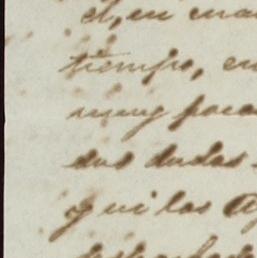 él, en cua
tiempo, en
muy poca
sus dudas
y ni las